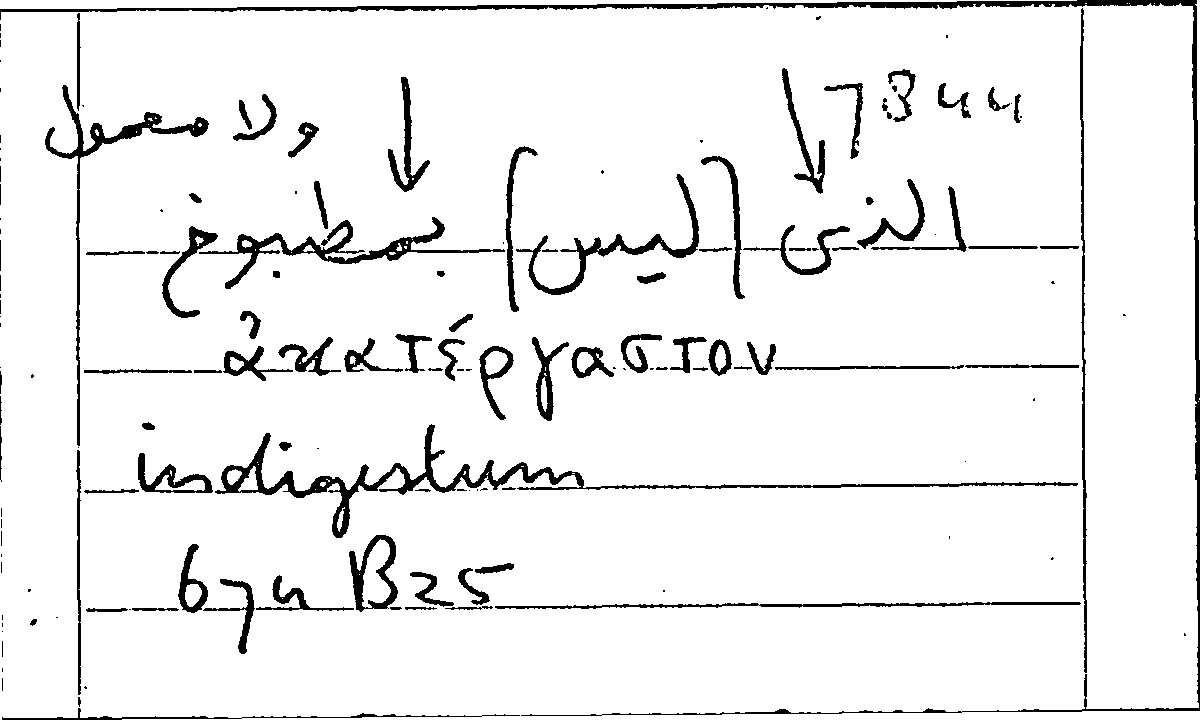 7B44 ولا معمول
الذى [ليس] بمطبوخ
ἀκατέργαστον
indigestum
674 B25